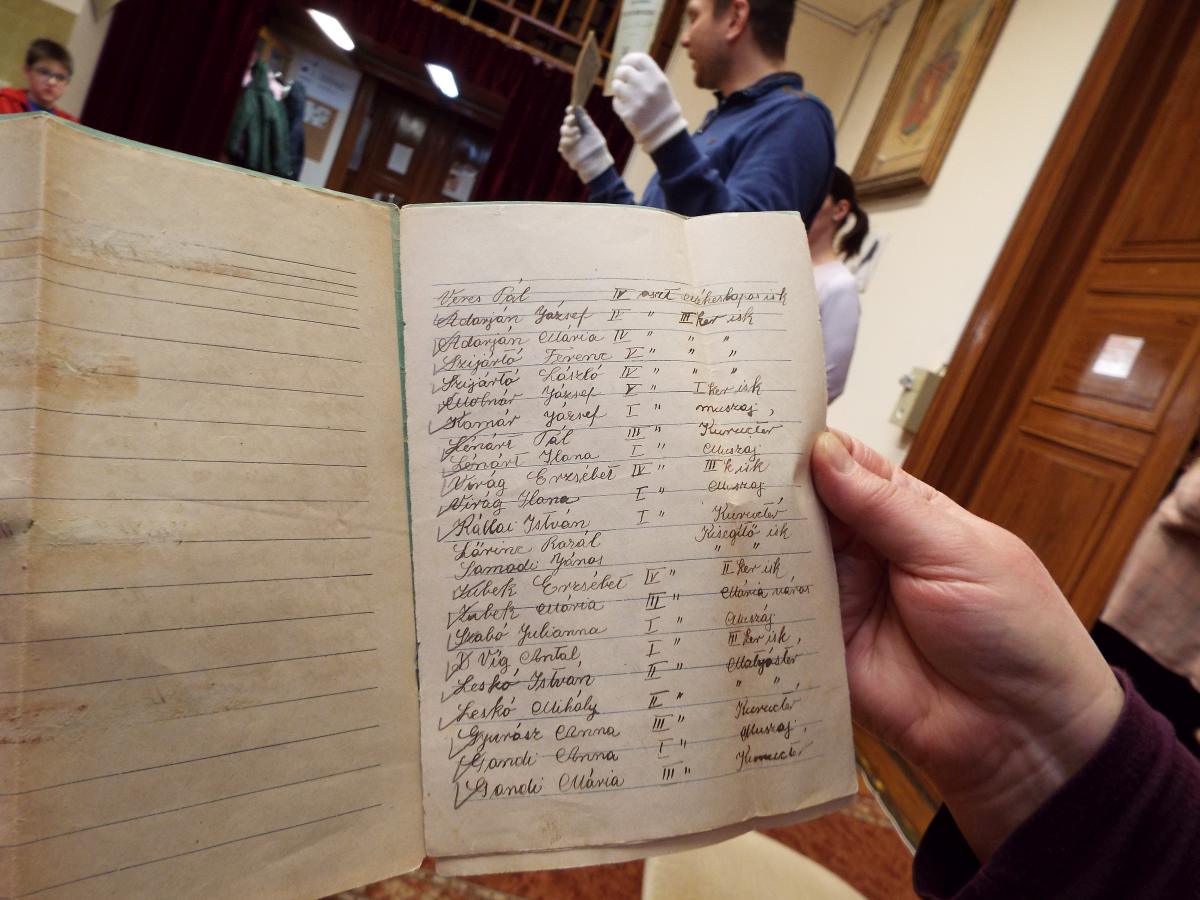 Veres Pál IV oszt Békeskapas isk
Adorján József V " III ker isk
Adorján Mária IV " " "
Szijártó Ferenc V " " "
Szijártó László IV " " "
Molnár József V " I ker isk
Komár József I " muszaj,
Lénárt Pál III " Kurucztér
Lénárt Ilona I " Muszaj
Virág Erzsébet IV " III k isk
Virág Ilona I " Muszaj
Kállai István I " Kurucztér
Lőrinc Kisegítő isk
Samodi János " "
Zubek Erzsébet IV " II ker isk
Zubek Mária III " Mária város
Szabó Julianna I " Muszáj
D Víg Antal I " III ker isk,
Leskó István II " Mátyástér
Leskó Mihály II " " "
Gyurász Anna III " Kurucztér
Gandi Anna I " Muszaj,
Gandi Mária III " Kurucztér